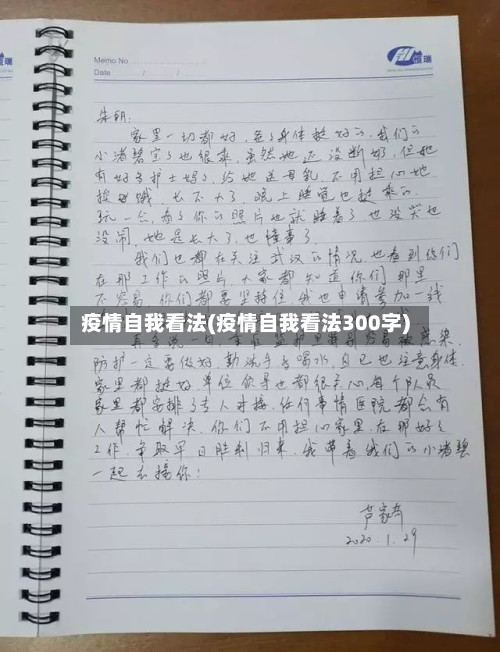 瑞
Memo No
Date / /
朱明:
家里一切都好,爸妈身体挺好的,我们的
小渚碧宝宝也很乖,虽然她还没断奶,但她
有好多护士妈妈给她送母乳,不用担心她
挨饿哦,长不大了,晚上睡觉也挺乖的,
玩一会,看了你的照片也就睡着了也没哭也
没闹,她是长大了,也懂事了
我们也都在关注武汉的情况,也看到你们
在那工作的照片,大家都知道你们那里
不容易,你们都要坚持住,我也申请参加一线
疫情自我看法(疫情自我看法300字)
再多说一句,感染
防护一定要做好,勤洗手多喝水,自己也注意身体,
家里都挺好,单位领导也都很关心,每个队员
家里都安排了专人对接,任何事情医院都会有
人帮忙解决,你们不用担心家里,在那好好
工作,争取早日胜利归来,我带着我们的小渚碧
一起去接你!
2020.1.29